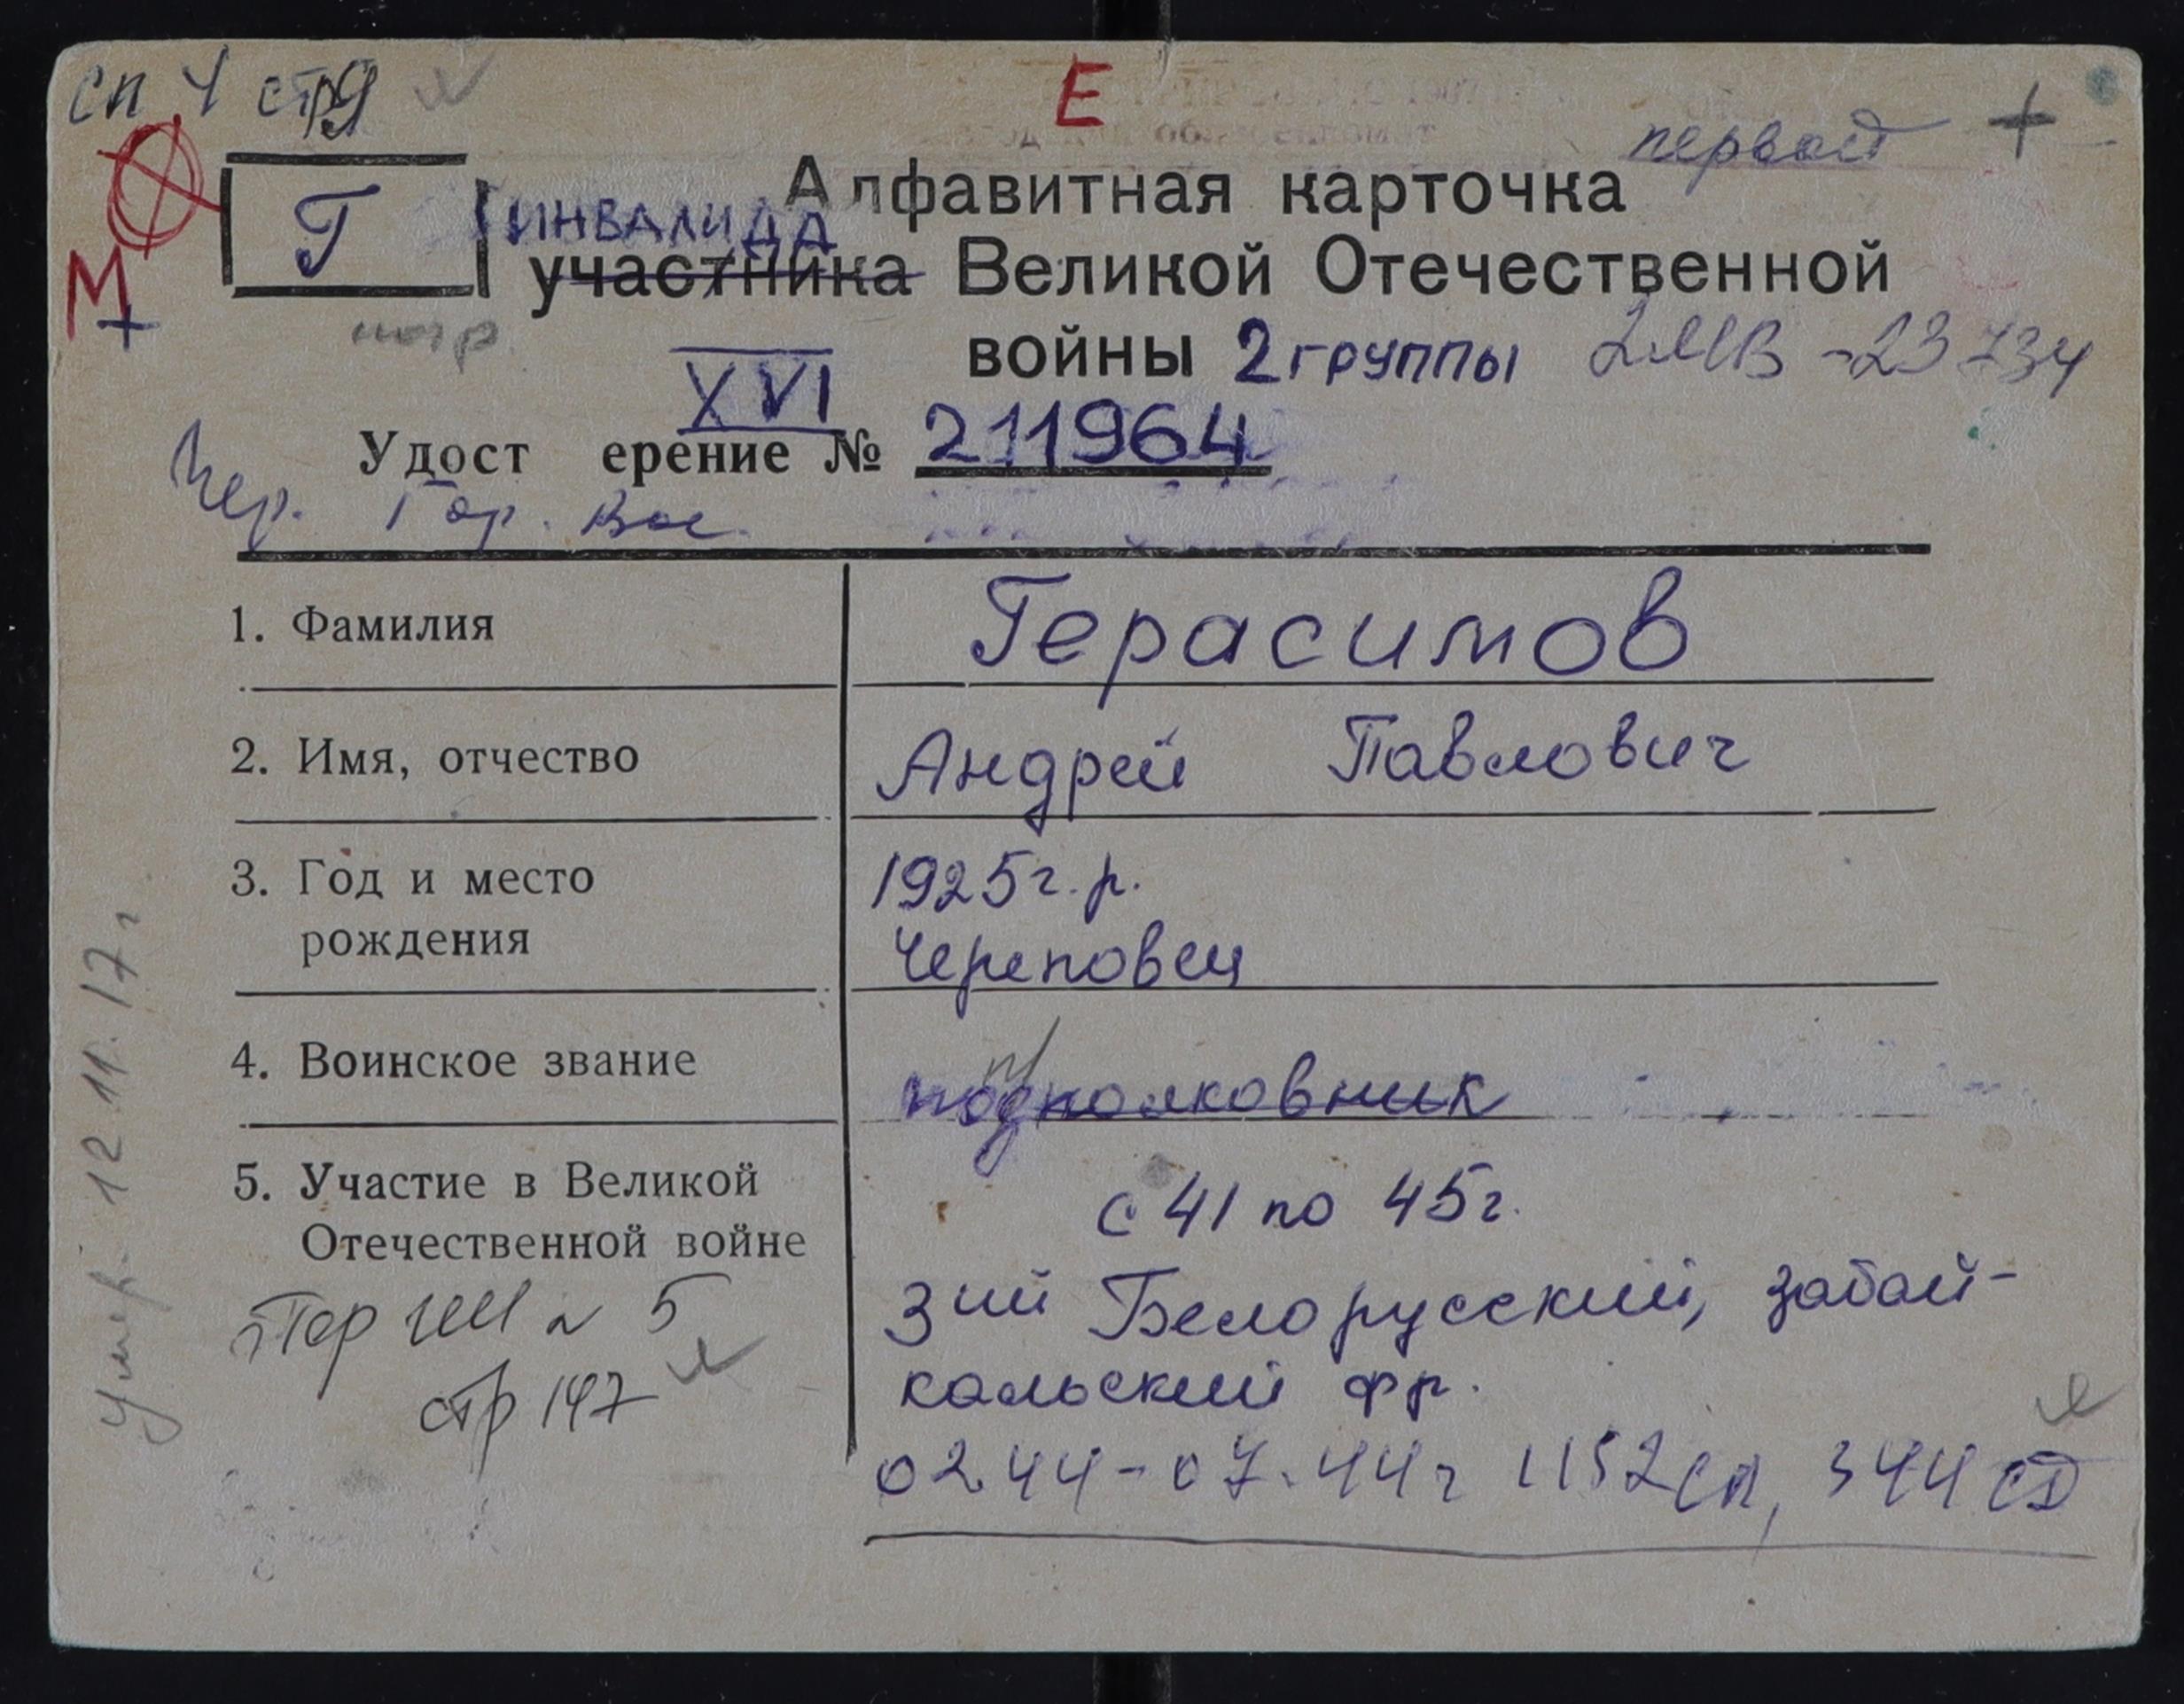 сп 4 стр 9
Е
первой +
Г
Алфавитная карточка
ИНВАЛИДА
участника Великой Отечественной
М
+
войны 2 группы
XVI
Удост ерение № 211964
Чер. Гор. Вое.
1. Фамилия Герасимов
2. Имя, отчество Андрей Павлович
3. Год и место 1925 г. р.
рождения Череповец
4. Воинское звание подполковник
5. Участие в Великой с 41 по 45 г.
Отечественной войне
3ий Белорусский, забай-
кальский фр.
02.44-07.44 г 1152 сп, 344 сд
№ 5
стр 147
Умер 12.11.17 г